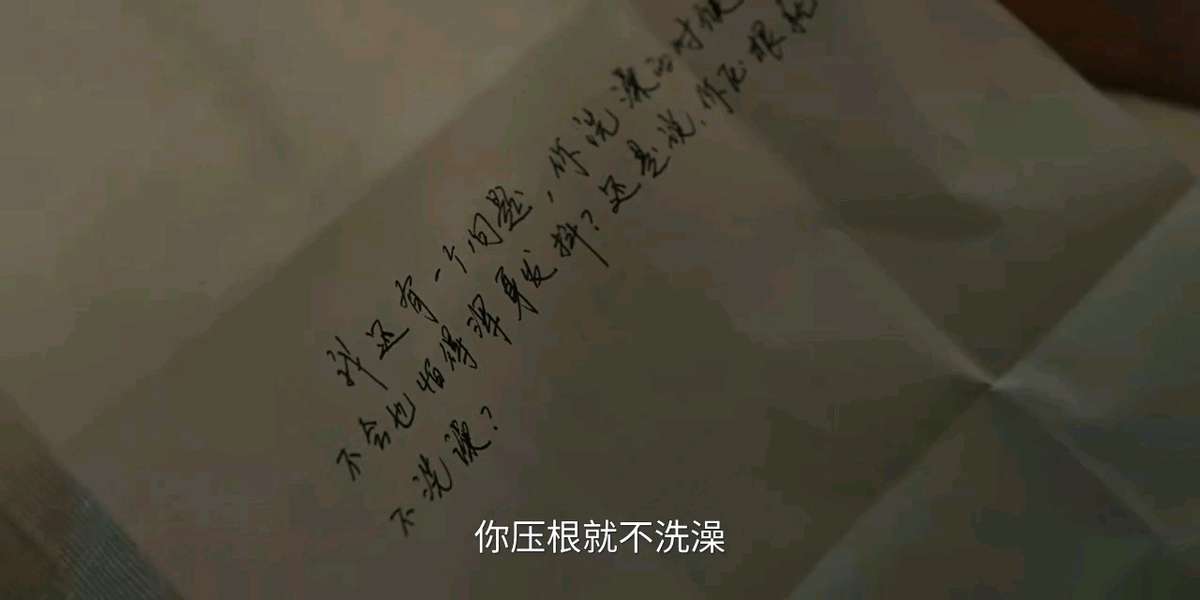 我还有一个问题，你洗澡的时候
不会也怕得浑身发抖？还是说，你压根就
不洗澡？
你压根就不洗澡